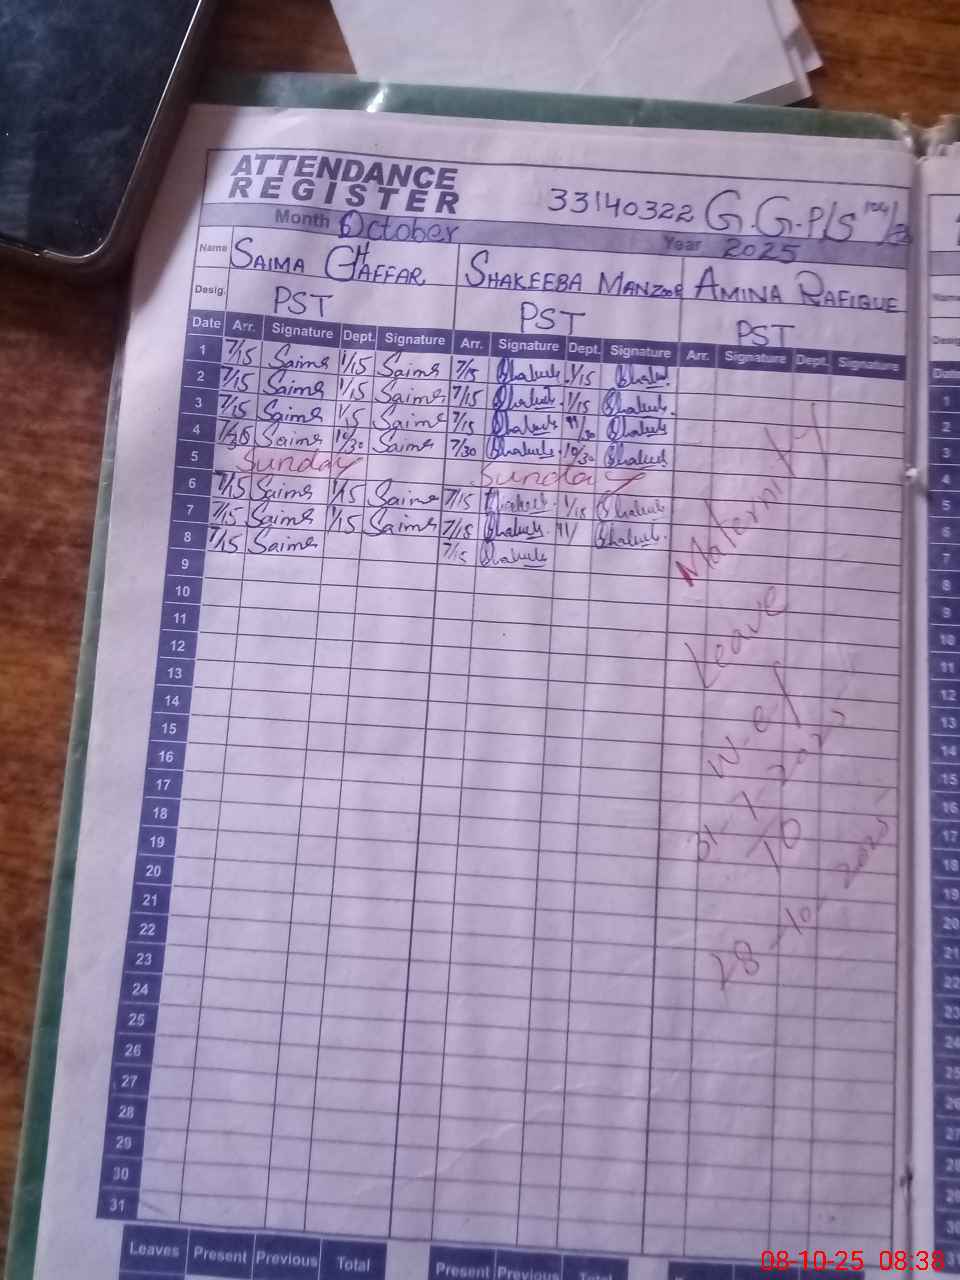 ATTENDANCE
REGISTER
33140322 G.G.P/S
Month October Year 2025
Name SAIMA GHAFFAR SHAKEEBA MANZOOR AMINA RAFIQUE
Desig. PST PST PST
Date Arr. Signature Dept. Signature Arr. Signature Dept. Signature Arr. Signature Dept. Signature
1 7/15 Saima 1/15 Saima 7/15 1/15
2 7/15 Saima 1/15 Saima 7/15 1/15
3 7/15 Saima Saima 7/15
4 Saima 10/30 Saima 7/30 10/30
5 Sunday Sunday
6 7/15 Saima 1/15 Saima 7/15 1/15
7 7/15 Saima 1/15 Saima 7/15
8 7/15 Saima 7/15
9
10
11
12
13
14
15
16
17
18
19
20
21
22
23
24
25
26
27
28
29
30
31
Maternity
Leave
w.e.f
31-7-2025
To
28-10-2025
Leaves Present Previous Total Present Previous Total
08-10-25 08:38